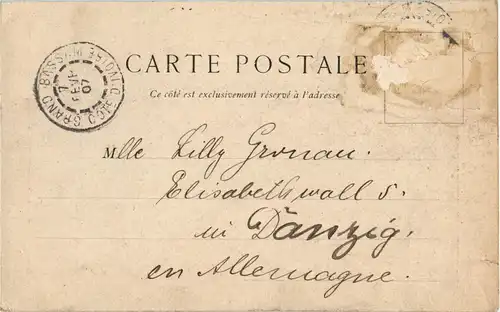 GRAND-BASSAM
CÔTE D'IVOIRE
7
FEVR
07
CARTE POSTALE
Ce côté est exclusivement réservé à l'adresse
Mlle Lilly Gronau.
Elisabethwall 5.
in Danzig.
en Allemagne.